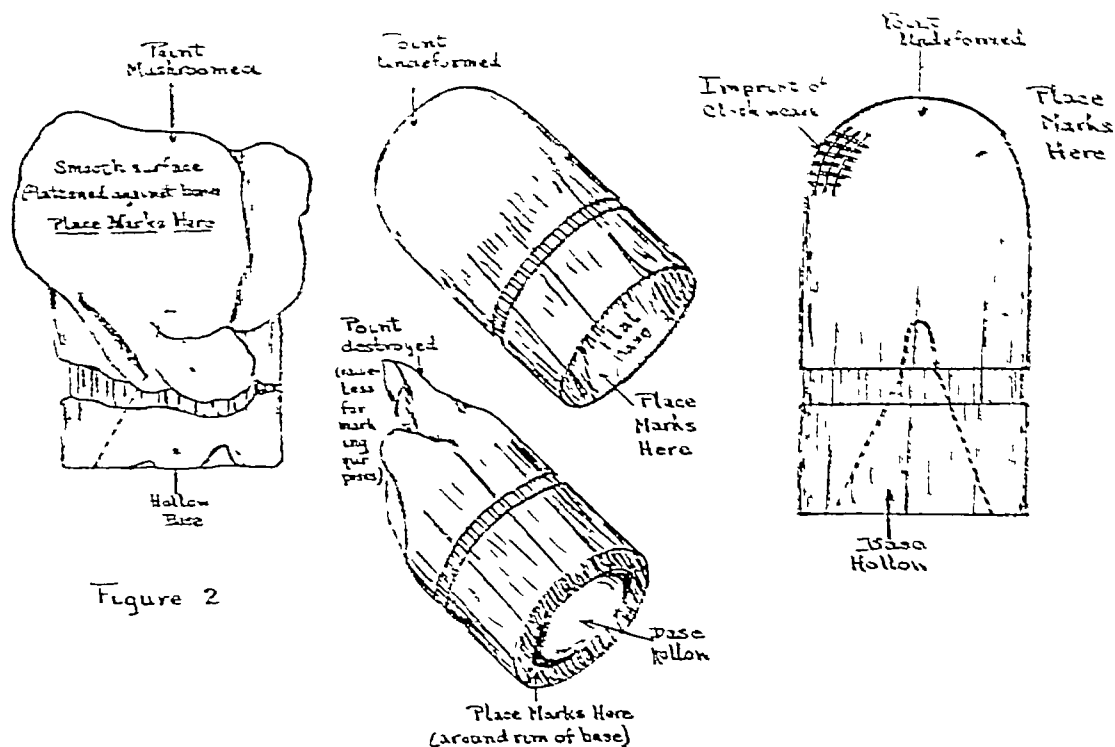 Point
Mushroomed
Smooth surface
flattened against bone
Place Marks Here
Hollow
Base
Figure 2
Point
Undeformed
Flat
Base
Place
Marks
Here
Point
destroyed
(use-
less
for
mark
ing
pur
poses)
Base
Hollow
Place Marks Here
(around rim of base)
Point
Undeformed
Imprint of
Cloth weave
Place
Marks
Here
Base
Hollow